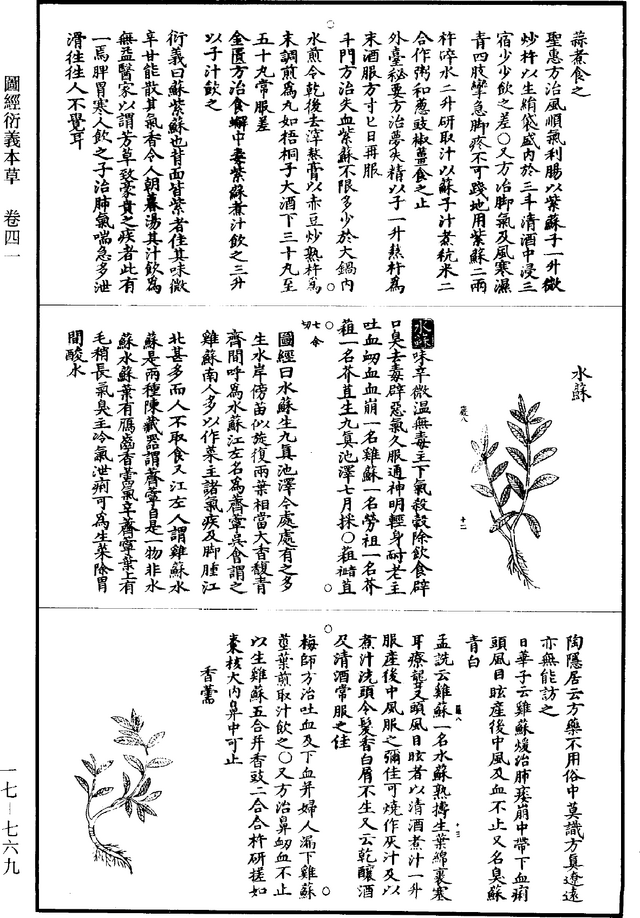 蒜煮食之
聖惠方治風順氣利腸以紫蘇子一升微
炒杵以生絹袋盛內於三斗清酒中浸三
宿少少飲之差〇又方治脚氣及風寒濕
青四肢攣急脚疼不可踐地用紫蘇二兩
杵碎水二升研取汁以蘇子汁煮秔米二
合作粥和蔥豉椒薑食之止
外臺秘要方治夢失精以子一升熬杵為
末酒服方寸匕日再服
斗門方治失血紫蘇不限多少於大鍋內
水煎令乾後去滓熬膏以赤豆炒熟杵為
末調煎為丸如梧桐子大酒下三十丸至
五十九常服差
金匱方治食蠏中毒紫蘇煮汁飲之三升
以子汁飲之
衍義曰蘇紫蘇也背面皆紫者佳其味微
辛甘能散其氣香令人朝暮湯其汁飲為
無益醫家以謂芳草致豪貴之疾者此有
一焉脾胃寒人飲之子治肺氣喘急多泄
滑往往人不覺耳
水蘇
水蘇味辛微溫無毒主下氣殺穀除飲食辟
口臭去毒辟惡氣久服通神明輕身耐老主
吐血衂血血崩一名雞蘇一名勞祖一名芥
蒩一名芥苴生九真池澤七月採〇蒩
七余切
圖經曰水蘇生九真池澤今處處有之多
生水岸傍苗似旋復兩葉相當大香馥青
齊間呼為水蘇江左名為薺薴吳會謂之
雞蘇南人多以作菜主諸氣疾及脚腫江
北甚多而人不取食又江左人謂雞蘇水
蘇是兩種陳藏器謂薺薴自是一物非水
蘇水蘇葉有鴈齒香薷氣辛薺薴葉上有
毛稍長氣臭主冷氣泄痢可為生菜除胃
間酸水
陶隱居云方藥不用俗中莫識方真遼遠
亦無能訪之
日華子云雞蘇煖治肺痿崩中帶下血痢
頭風目眩產後中風及血不止又名臭蘇
青白
孟詵云雞蘇一名水蘇熟擣生葉綿裹塞
耳療聾又頭風目眩者以清酒煮汁一升
服產後中風服之彌佳可燒作灰汁及以
煮汁洗頭令髮香白屑不生又云乾釀酒
及清酒常服之佳
梅師方治吐血及下血并婦人漏下雞蘇
莖葉煎取汁飲之〇又方治鼻衂血不止
以生雞蘇五合并香豉二合合杵研搓如
棗核大內鼻中可止
香薷
圖經衍義本草 卷四一
一七—七六九